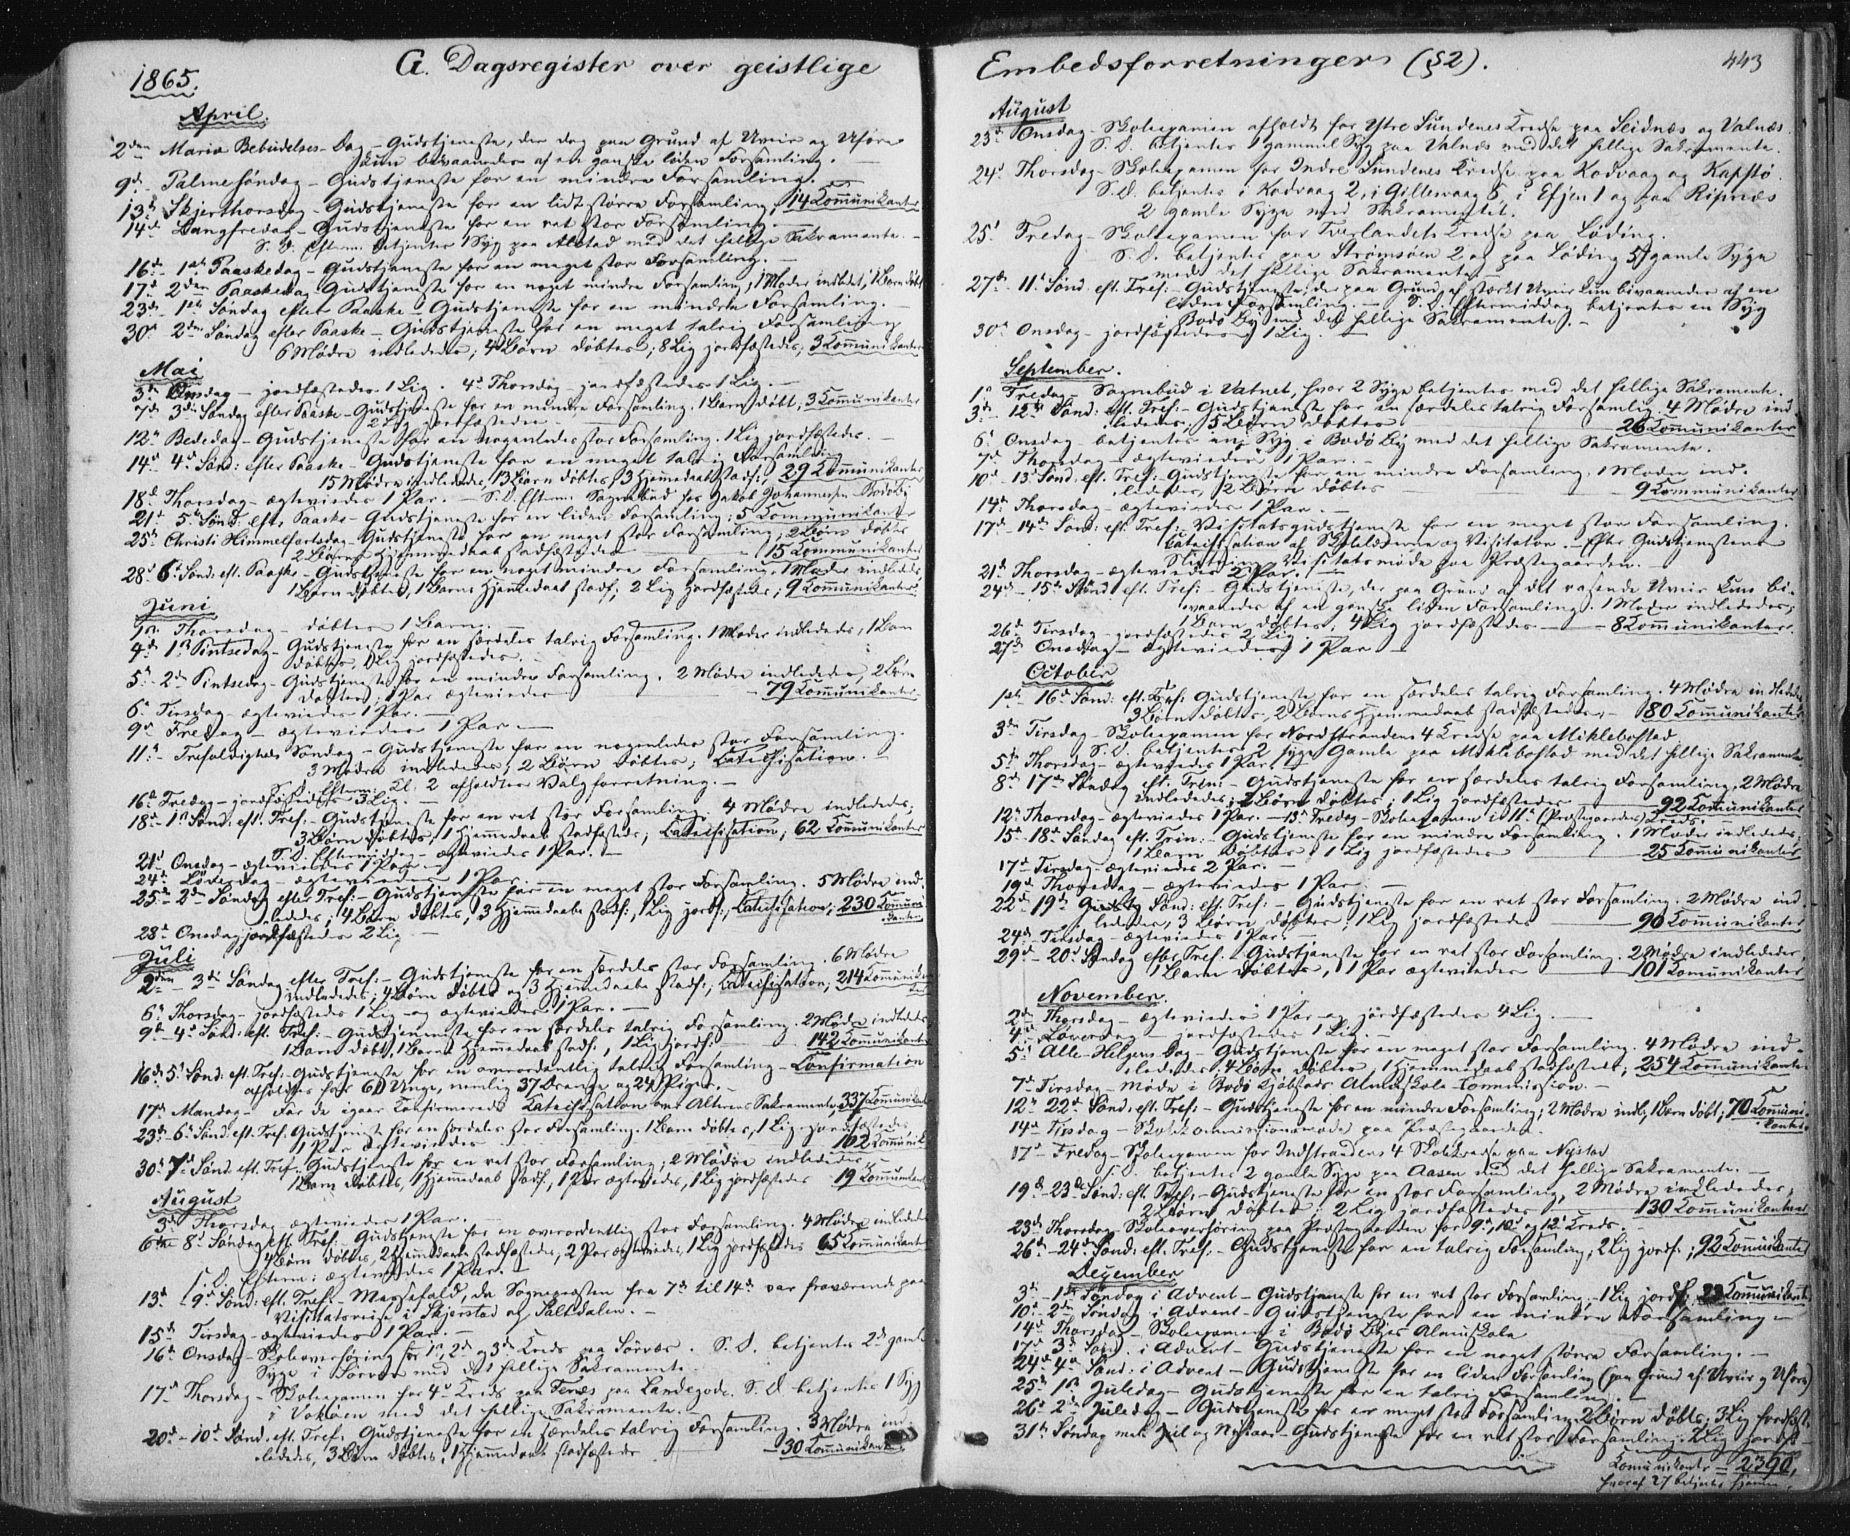 1865.
G. Dagsregister over geistlige
April.
2den Mariæ Bebudelses-Dag - Gudstjeneste, der dog paa Grund af Uveir og Uføre
kun bivaanedes af en ganske liden Forsamling. -
9d - Palmesøndag - Gudstjeneste for en mindre Forsamling.
13d Skjærthorsdag - Gudstjeneste for en lidt større Forsamling, 14 Kommunikanter
14d Langfredag - Gudstjeneste for en ret stor Forsamling -
S. D. Efterm. betjentes 1 Syg paa Alstad med det hellige Sakramente. -
16d - 1ste Paaskedag - Gudstjeneste for en meget stor Forsamling. -
17d - 2den Paaskedag - Gudstjeneste for en noget mindre Forsamling, 1 Moder indledet, 1 Barn døbt
23d - 1ste Søndag efter Paaske - Gudstjeneste for en mindre Forsamling. -
30d 2den Søndag efter Paaske - Gudstjeneste for en meget talrig Forsamling
6 Mødre indlededes; 4 Børn døbtes; 8 Lig jordfæstedes; 3 Kommunikanter
Mai
3d Onsdag - jordfæstedes 1 Lig. 4d Thorsdag - jordfæstedes 1 Lig. -
7d 3die Søndag efter Paaske - Gudstjeneste for en mindre Forsamling. 1 Barn døbt, 3 Kommunikanter
2 Lig jordfæstedes -
12d Bededag - Gudstjeneste for en nogenledes stor Forsamling. 1 Lig jordfæstedes. -
14d 4d Sønd: efter Paaske - Gudstjeneste for en meget talrig Forsamling
15 Mødre indlededes, 13 Børn døbtes, 3 Hjemmedaab stadf:, 29 Kommunikanter
18d Thorsdag - ægteviedes 1 Par. - S. D. Efterm. Sognebud hos Jakob Johannesen Bodøby
21d 5te Sønd: eft. Paaske - Gudstjeneste for en liden Forsamling; 5 Kommunikanter
25d Christi Himmelfartsdag - Gudstjeneste for en meget stor Forsamling, 2 Børn døbtes
2 Børns Hjemmedaab stadfæstedes - 15 Kommunikanter
28d 6d Sønd. eft. Paaske - Gudstjeneste for en noget mindre Forsamling. 1 Moder indledes
1 Barn døbtes, 1 Barns Hjemmedaab stadf; 2 Lig jordfæstedes; 9 Kommunikanter.
Juni
1ste Thorsdag - døbtes 1 Barn. -
4d 1ste Pintsedag - Gudstjeneste for en særdeles talrig Forsamling. 1 Moder indledede, 1 Barn
døbtes, 1 Lig jordfæstedes. -
5d - 2den Pintsedag - Gudstjeneste for en mindre Forsamling. 2 Mødre indlededes, 2 Børn
døbtes, 1 Par ægteviedes - 79 Kommunikanter
6d Tirsdag - ægteviedes 1 Par. -
9d Fredag - ægteviedes 1 Par. -
11d - Trefoldigheds Søndag - Gudstjeneste for en nogenledes stor Forsamling.
3 Mødre indlededes, 2 Børn døbtes; Catechisation. -
S. D. Efterm: Kl. 2 afholdtes Valgforretning. -
16d Fredag - jordfæstedes 3 Lig. -
18d - 1ste Sønd: eft. Tref: - Gudstjeneste for en ret stor Forsamling. 4 Mødre indlededes;
3 Børn døbtes, 1 Hjemmedaab stadfæstede, Catechisation, 62 Kommunikanter
S. D. Eftermiddag - ægteviedes 1 Par. -
21d Onsdag - ægteviedes 1 Par. -
24d Løverdag - ægteviedes 1 Par. -
25d 2den Søndag efter Tref: - Gudstjeneste for en meget stor Forsamling. 5 Mødre ind-
ledede, 4 Børn døbtes, 3 Hjemmedaabe stadf:, 1 Lig jordf:, Catechisation; 230 Kommuni-
kanter
28d Onsdag jordfæstedes 2 Lig -
Juli
2den 3die Søndag efter Tref: - Gudstjeneste for en særdeles stor Forsamling. 6 Mødre
indlededes, 4 Børn døbtes og 3 Hjemmedaabe stadf:, Catechisation, 214 Kommunikan-
ter
6d Thorsdag - jordfæstedes 1 Lig og ægteviedes 1 Par. -
9d - 4d Sønd: eft. Tref: - Gudstjeneste for en særdeles talrig Forsamling. 2 Mødre indledede
1 Barn døbt, 1 Barns Hjemmedaab stadf., 1 Lig jordf: - 142 Kommunikanter
16d 5d Sønd: eft. Tref: - Gudstjeneste for en overordentlig talrig Forsamling - Confirmation
afholdtes for 61 Unge, nemlig 37 Drenge og 24 Piger. -
17d Mandag - For de igaar Confirmerede Catechisation over Alterens Sakramente, 337 Kommunikan
23d 6d Sønd: eft. Tref. Gudstjeneste for en særdeles stor Forsamling. 1 Barn døbtes, 1 Lig jordfæstedes
1 Par ægteviedes - 102 Kommunik.
30d 7d Sønd: eft. Tref: Gudstjeneste for en ret stor Forsamling; 2 Mødre indlededes -
1 Barn døbtes, 1 Hjemmedaab stadf., 1 Par ægteviedes, 1 Lig jordfæstedes 19 Kommunikant
August
3d Thorsdag ægteviedes 1 Par. -
6te 8d Søndag eft. Tref - Gudstjeneste for en overordentlig stor Forsamling. 4 Mødre indledede
4 Børn døbtes, 2 Hjemmedaabe stadfæstedes, 2 Par ægteviedes, 1 Lig jordfæstedes 65 Kommunikanter
S. D. Efterm: ægteviedes 1 Par. -
13d - 9d Sønd: eft. Tref: - Messefald, da Sognepræsten fra 7d til 14d var fraværende paa
Visitatsreise i Skjerstad og Saltdalen. -
15d Tirsdag - ægteviedes 1 Par. -
16d Onsdag - Skoleoverhøring for 1ste, 2d og 3d Kreds paa Sørvær. S. D. betjentes 2 gamle
Syge i Sørvær med det hellige Sakramente. -
17d Thorsdag - Skoleexamen for 4d Kreds paa Fenes paa Landegode. S. D. betjentes 1 Syg
i Vokøen med det hellige Sakramente. -
20d - 10d Sønd: eft. Tref. Gudstjeneste for en særdeles talrig Forsamling. 3 Mødre ind-
ledede, 3 Børn døbtes, 1 Hjemmedaab stadfæstede - 30 Kommunikanter
Embedsforretninger (§2).
443
August
23d Onsdag - Skoleexamen afholdt for Ytre Sundenes Kreds paa Seidnæs og Valnæs.
S. D. betjentes 1 gammel Syg paa Valnæs med det hellige Sakramente.
24d Thorsdag - Skoleexamen for Indre Sundenes Kreds paa Kodvaag og Kapstø.
S. D. betjentes i Kodvaag 2, i Gillesvaag 5, i Efjen 1 og paa Ripnæs
2 gamle Syge med Sakramentet. -
25d Fredag - Skoleexamen for Tverlandets Kreds paa Løding.
S. D. betjentes paa Strømsøen 2 og paa Løding 5 gamle Syge
med det hellige Sakramente. -
27d - 11d Sønd. eft. Tref: - Gudstjeneste, der paa Grund af stærkt Uveir kun bivaanedes af en
liden Forsamling. - S. D. Eftermiddag betjentes en Syg
i Bodø By med det hellige Sakramente. -
30d Onsdag - jordfæstedes 1 Lig. -
September.
1ste Fredag Sognebud i Vatnet, hvor 2 Syge betjentes med det hellige Sakramente.
3d - 12te Sønd: eft. Tref: - Gudstjeneste for en særdeles talrig Forsamlig. 4 Mødre ind-
ledede, 5 Børn døbtes - 26 Kommunikanter
6d Onsdag - betjentes en Syg i Bodø By med det hellige Sakramente.
7d Thorsdag - ægteviedes 1 Par. -
10d 13d Sønd. eft. Tref: Gudstjeneste for en mindre Forsamling. 1 Moder ind-
ledede, 2 Børn døbtes - 9 Kommunikanter
14d Thorsdag - ægteviedes 1 Par. -
17d - 14d Sønd: eft. Tref: - Visitatsgudstjeneste for en meget stor Forsamling.
Catechisation af Skolelærerne og Visitator. - Efter Gudstjenesten
Visitatsmøde paa Præstegaarden. -
21d Thorsdag - ægteviedes 2 Par. -
24d - 15d Sønd: eft. Tref: - Gudstjeneste, der paa Grund af det rasende Uveir kun bi-
vaanedes af en ganske liden Forsamling. 1 Moder indlededes,
1 Barn døbtes, 4 Lig jordfæstedes - 8 Kommunikanter.
26d Tirsdag - jordfæstedes 2 Lig. -
27d Onsdag - ægteviedes 1 Par -
October
1ste 16d Sønd: eft. Tref: Gudstjeneste for en særdeles talrig Forsamling. 4 Mødre indledede
3 Børn døbtes, 2 Børns Hjemmedaab stadfæstedes, - 80 Kommunikanter
3d Tirsdag - Skoleexamen for Nordstrandens 4 Kreds paa Miklebostad
S. D. betjentes 2 syge Gamle paa Miklebostad med det hellige Sakramente
5d Thorsdag - ægteviedes 1 Par. -
8d 17d Søndag eft. Tren: - Gudstjeneste for en særdeles talrig Forsamling, 2 Mødre
indlededes; 2 Børn døbtes; 1 Lig jordfæstedes - 92 Kommunikanter
12d Thorsdag - ægteviedes 1 Par. - 13d Fredag - Skoleexamen i 11d (Præstegaardens) Kreds. -
15d - 18d Søndag eft. Trin: - Gudstjeneste for en mindre Forsamling. 1 Moder indlededes,
1 Barn døbtes, 1 Lig jordfæstedes - 25 Kommunikanter
17d Tirsdag - ægteviedes 2 Par. -
19d Thorsdag - ægteviedes 1 Par. -
22d 19d Sønd: eft. Tref: - Gudstjeneste for en ret stor Forsamling. 2 Mødre ind-
ledede, 3 Børn døbtes, 1 Lig jordfæstedes - 90 Kommunikanter
24d Tirsdag - ægteviedes 1 Par. -
29d - 20d Søndag efter Tref: - Gudstjeneste for en ret stor Forsamling. 2 Mødre indlededes,
1 Barn døbtes, 1 Par ægteviedes - 101 Kommunikanter
November.
2d Thorsdag - ægteviedes 1 Par og jordfæstedes 4 Lig. -
4d Løverdag - jordfæstedes 1 Lig. -
5d Alle-Helgens Dag - Gudstjeneste for en meget stor Forsamling. 4 Mødre ind-
ledede, 4 Børn døbtes, 1 Hjemmedaab stadfæstedes, 254 Kommunikanter
7d Tirsdag - Møde i Bodø Kjøbstads Almuskole-Commission. -
12d 22d Sønd: eft. Tref: - Gudstjeneste for en mindre Forsamling; 2 Mødre indl; 1 Barn døbt; 70 Kommuni-
kanter
14d Tirsdag - Skolekommissionsmøde paa Præstegaarden.
17d Fredag - Skoleexamen for Indstrandens 4 Skolekreds paa Nystad
S. D. betjentes 2 gamle Syge paa Aasen med det hellige Sakramente. -
19d - 23de Sønd: eft. Tref: - Gudstjeneste for en stor Forsamling, 2 Mødre indlededes,
2 Børn døbtes; 2 Lig jordfæstedes - 130 Kommunikanter
23d Thorsdag Skoleoverhøring paa Præstegaarden for 9d, 10d og 12d Kreds. -
26d - 24d Sønd: eft. Tref: - Gudstjeneste for en talrig Forsamling, 2 Lig jordf:; 92 Kommunikanter
December
3d - 1ste Søndag i Advent - Gudstjeneste for en ret stor Forsamling, 1 Lig jordf; 23 Kommunikant
10d - 2den Søndag i Advent - Gudstjeneste for en mindre Forsamling -
14d Thorsdag - Skoleexamen i Bodø Byes Almuskole
17d 3d Sønd. i Advent - Gudstjeneste for en noget større Forsamling. -
24d 4d Sønd: i Advent - Gudstjeneste for en liden Forsamling (paa Grund af Uveir og Uføre)
25d 1ste Juledag - Gudstjeneste for en talrig Forsamling
26d 2den Juledag - Gudstjeneste for en meget stor Forsamling. 2 Børn døbtes; 3 Lig jordfæst:
31te Søndag mell Juul og Nytaar - Gudstjeneste for en ret stor Forsamling. 2 Lig jordf: -
Kommunikanter = 2390,
hvoraf 27 betjente hjemme.